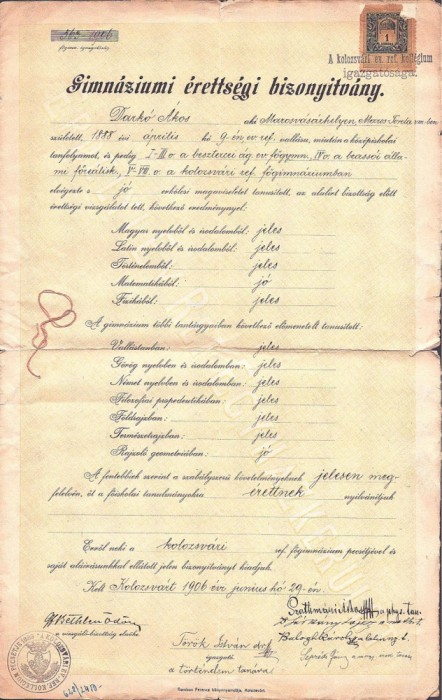 363-1906
A kolozsvári ev. ref. kollégium
igazgatósága.
Gimnáziumi érettségi bizonyítvány.
Darkó Ákos aki Marosvásárhelyen, Maros-Torda vm-ben
született, 1888 évi április hó 9-én ev. ref. vallásu, miután a középiskolai
tanfolyamot, és pedig I-III o. a beszterczei ág. ev. főgymn., IV o. a brassói álla-
mi főreálisk., V-VIII o. a kolozsvári ref. főgimnáziumban
elvégezte s jó erkölcsi magaviseletet tanusitott, az alulirt bizottság előtt
érettségi vizsgálatot tett, következő eredménynyel:
Magyar nyelvből és irodalomból: jeles
Latin nyelvből és irodalomból: jeles
Történelemből: jeles
Mathematikából: jó
Fizikából: jeles
A gimnázium többi tantárgyaiban következő előmenetelt tanusitott:
Vallástanban: jeles
Görög nyelvben és irodalomban: jeles
Német nyelvben és irodalomban: jeles
Filozofiai propedeutikában: jeles
Földrajzban: jeles
Természetrajzban: jeles
Rajzoló geometriában: jó
A fentebbiek szerint a szabályszerü követelményeknek jelesen meg-
felelvén, őt a főiskolai tanulmányokra érettnek nyilvánitjuk
Erről neki a kolozsvári ref. főgimnázium pecsétjével és
saját aláirásunkkal ellátott jelen bizonyitványt kiadjuk.
Kelt Kolozsvárt 1906 évi junius hó 29-én.
Gf Bethlen Ödön
a vizsgáló-bizottság elnöke
Török István dr
igazgató
a történelem tanára